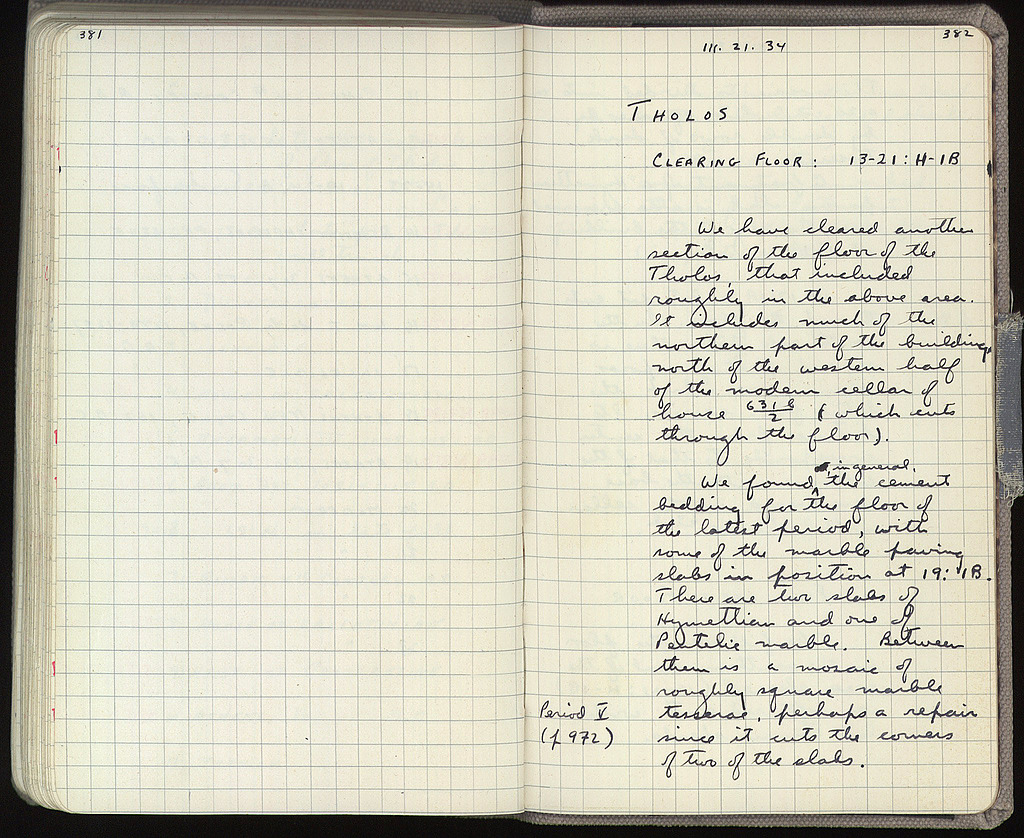 381
382
III. 21. 34
THOLOS
CLEARING FLOOR: 13-21: H-IB
We have cleared another
section of the floor of the
Tholos, that included
roughly in the above area.
It includes much of the
northern part of the building,
north of the western half
of the modern cellar of
house 631b/2 (which cuts
through the floor).
in general,
We found the cement
bedding for the floor of
the latest period, with
some of the marble paving
slabs in position at 19: IB.
There are two slabs of
Hymettian and one of
Pentelic marble. Between
them is a mosaic of
roughly square marble
Period V tesserae, perhaps a repair
(p 972) since it cuts the corners
of two of the slabs.